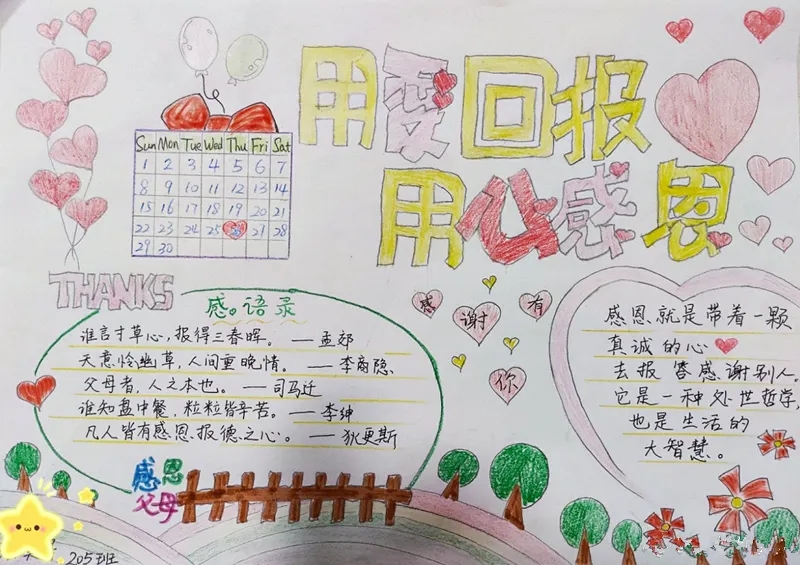 用爱回报
用心感恩
Sun Mon Tue Wed Thu Fri Sat
1 2 3 4 5 6 7
8 9 10 11 12 13 14
15 16 17 18 19 20 21
22 23 24 25 26 27 28
29 30
THANKS
感。语录
谁言寸草心,报得三春晖。 —孟郊
天意怜幽草,人间重晚情。 —李商隐
父母者,人之本也。 —司马迁
谁知盘中餐,粒粒皆辛苦。 —李绅
凡人皆有感恩报德之心。 —狄更斯
感恩
父母
感 谢 有
你
感恩就是带着一颗
真诚的心
去报答感谢别人。
它是一种处世哲学,
也是生活的
大智慧。
205班